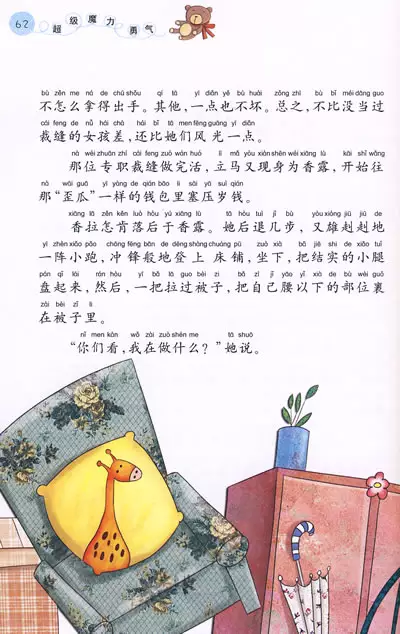 62
超级魔力
勇气
bù zěn me ná de chū shǒu qí tā yì diǎn yě bù huài zǒng zhī bù bǐ méi dāng guo
不怎么拿得出手。其他,一点也不坏。总之,不比没当过
cái feng de nǚ hái chà hái bǐ tā men fēng guāng yì diǎn
裁缝的女孩差,还比她们风光一点。
nà wèi zhuān zhí cái feng zuò wán huó lì mǎ yòu xiàn shēn wéi xiāng lù kāi shǐ wǎng
那位专职裁缝做完活,立马又现身为香露,开始往
nà wāi guā yí yàng de qián bāo li sāi yā suì qián
那“歪瓜”一样的钱包里塞压岁钱。
xiāng lā zěn kěn luò hòu yú xiāng lù tā hòu tuì jǐ bù yòu xióng jiū jiū de
香拉怎肯落后于香露。她后退几步,又雄赳赳地
yí zhèn xiǎo pǎo chōng fēng bān de dēng shàng chuáng pù zuò xià bǎ jiē shi de xiǎo tuǐ
一阵小跑,冲锋般地登上床铺,坐下,把结实的小腿
pán qǐ lái rán hòu yì bǎ lā guo bèi zi bǎ zì jǐ yāo yǐ xià de bù wèi guǒ
盘起来,然后,一把拉过被子,把自己腰以下的部位裹
zài bèi zi li
在被子里。
nǐ men kàn wǒ zài zuò shén me tā shuō
“你们看,我在做什么?”她说。